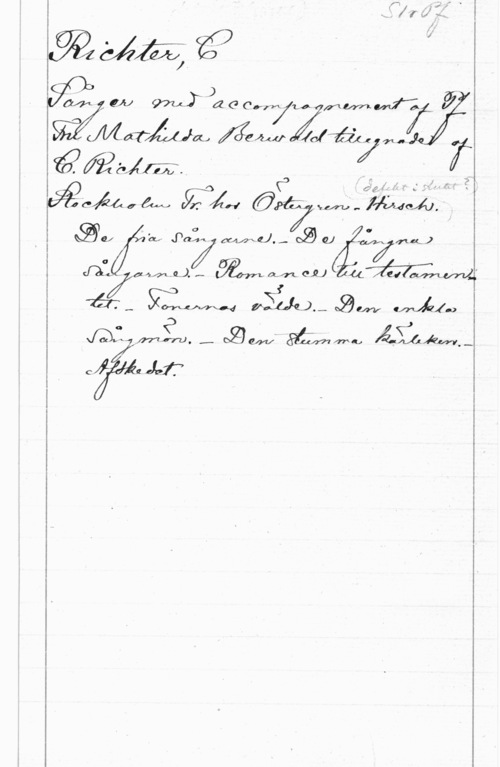 S1r Pf
Richter, C
Sånger med accompagnement af Pf
Fru Mathilda Berwald tillegnade af
C. Richter.
(defekt i slutet?)
Stockholm Tr. hos Östergren-Hirsch.
De fria sångarne. - De fångna
sångarne. - Romance till testamen-
tet. - Tonernas välde. - Den enkla
sångmön. - Den stumma kärleken. -
Afskedet.